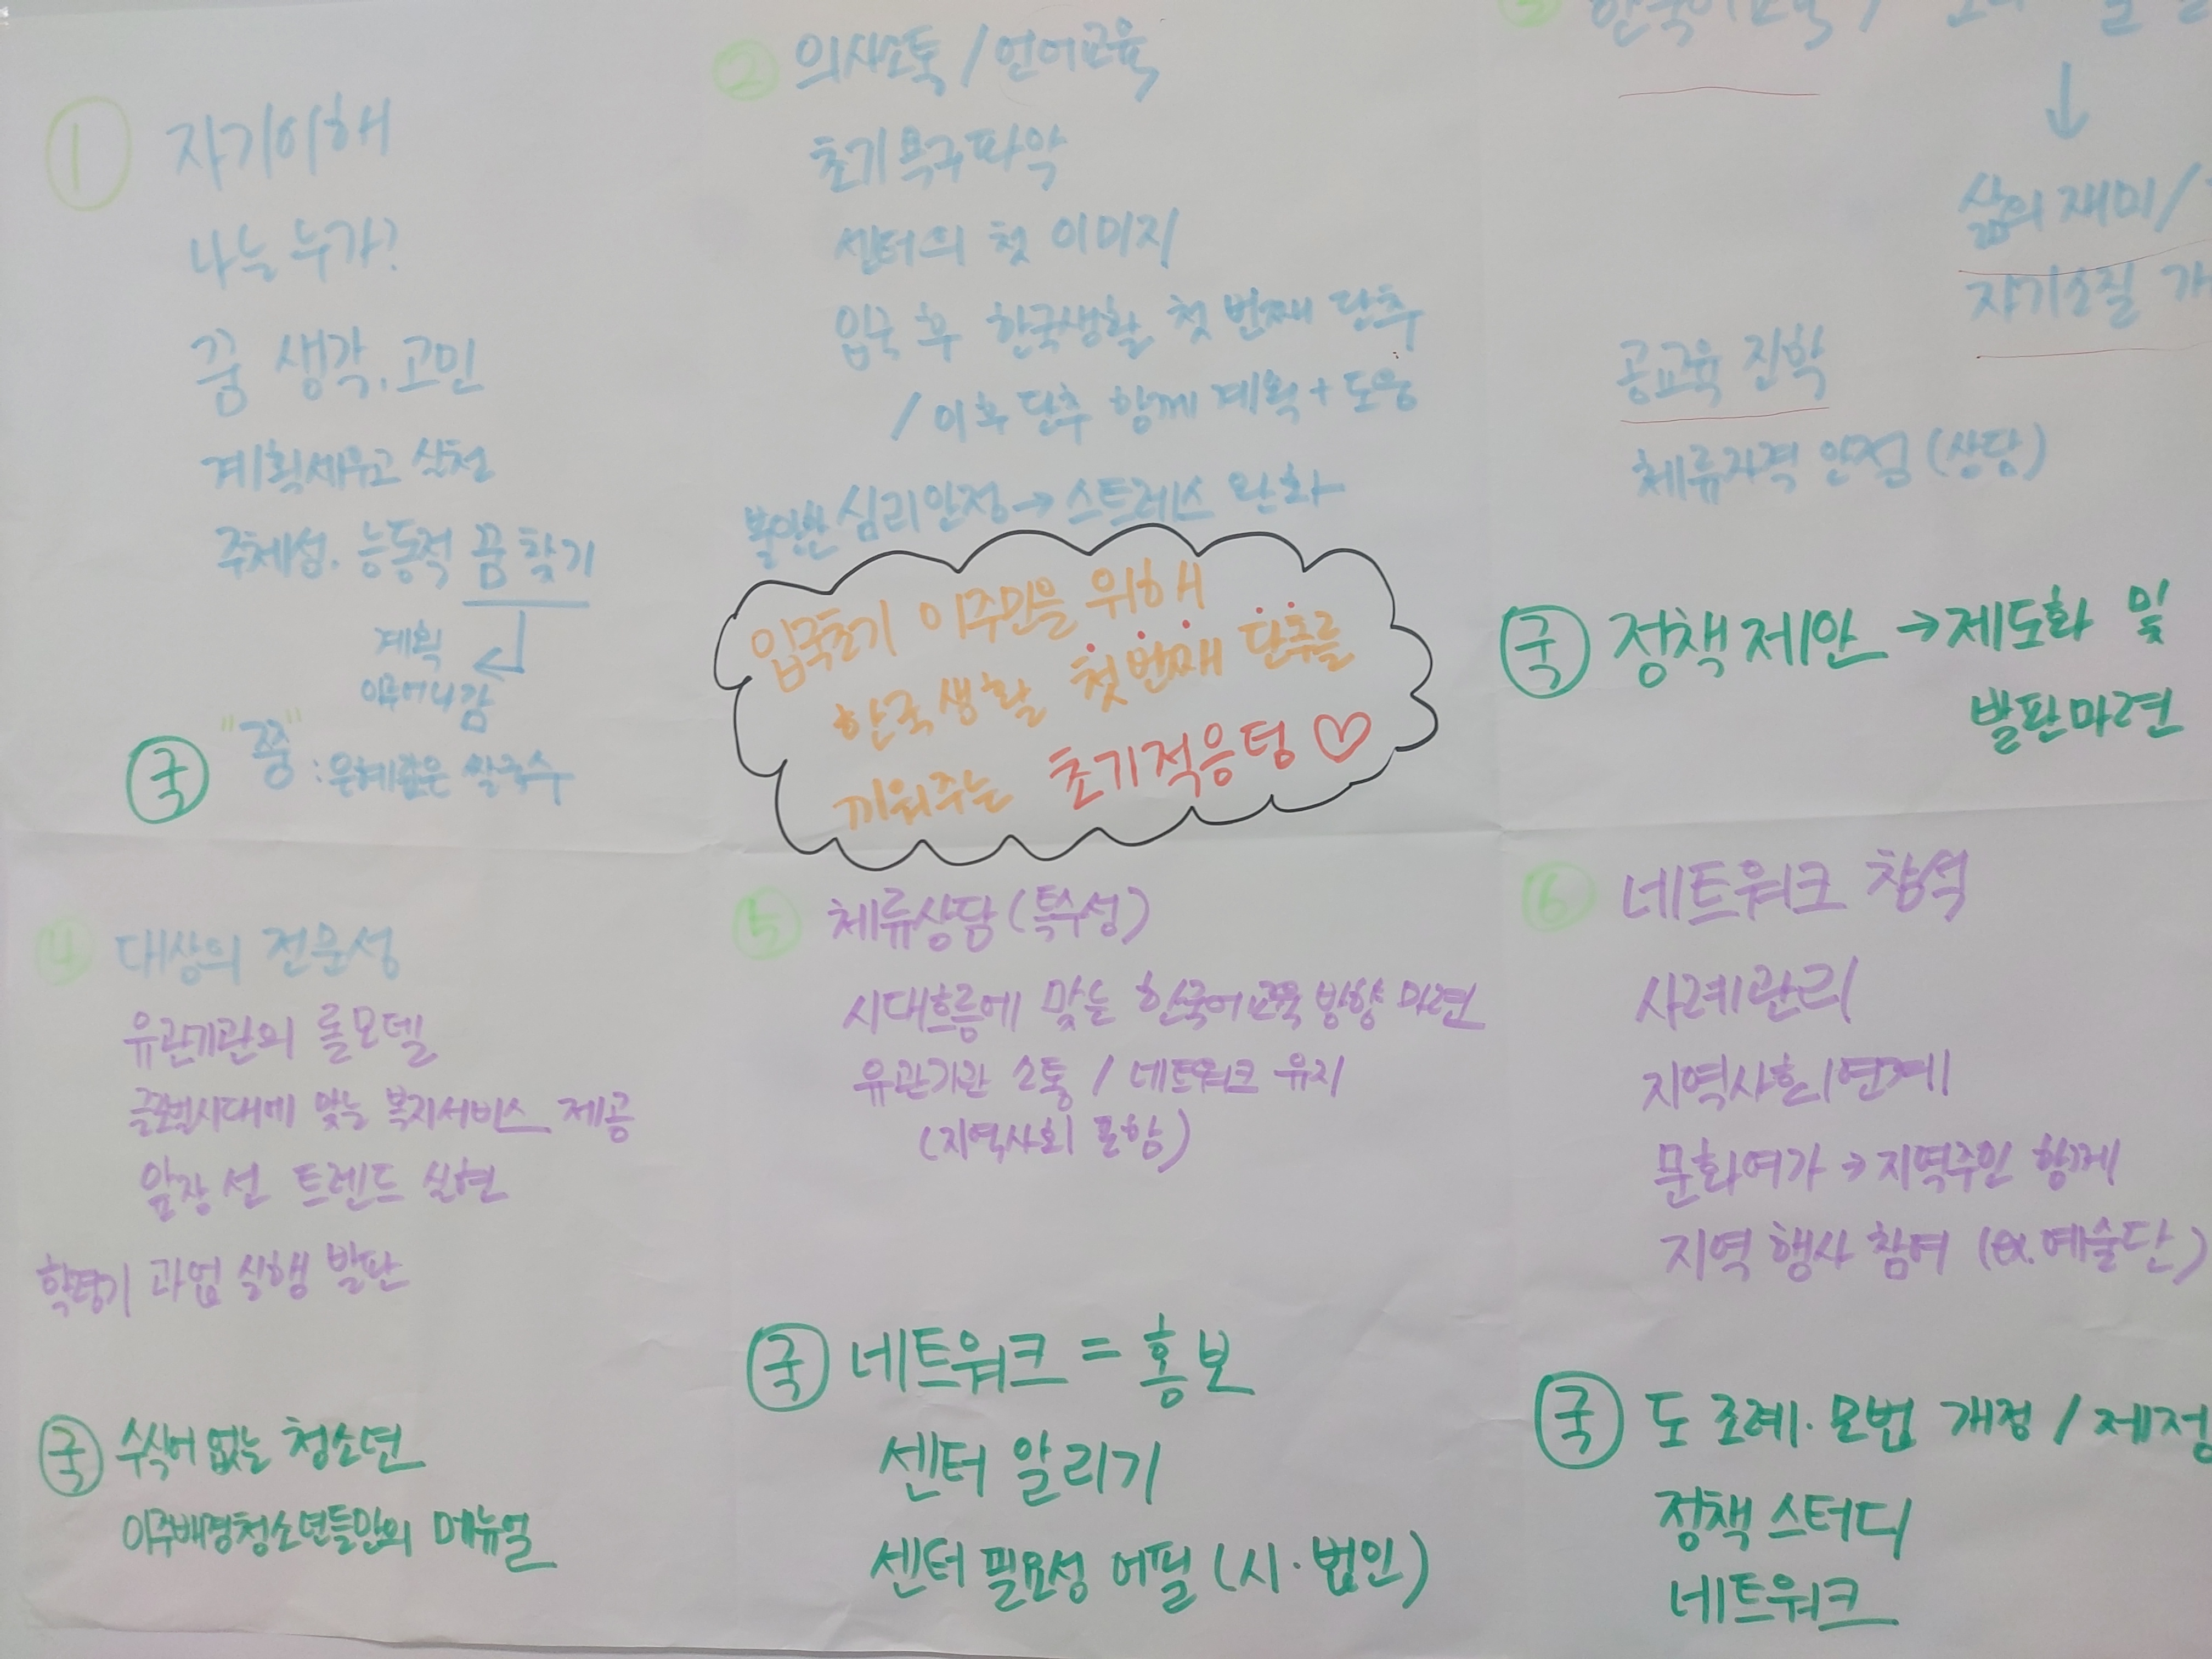 ① 자기이해
나는 누가?
꿈 생각, 고민
계획세우고 실천
주체성. 능동적 꿈찾기
계획
이루어나감
국 "쯩" : 은혜갚은 쌀국수
② 의사소통 / 언어교육
초기욕구파악
센터의 첫 이미지
입국 후 한국생활 첫 번째 단추
/ 이후 단추 함께 계획 + 도움
심리안정 → 스트레스 완화
입국초기 이주민을 위해
한국생활 첫번째 단추를
끼워주는 초기적응팀 ♡
③
↓
삶의 재미/
자기소질
공교육 진학
체류자격 안정 (상담)
국 정책제안 → 제도화 및
발판마련
④ 대상의 전문성
유관기관의 롤모델
글로벌시대에 맞는 복지서비스 제공
앞장 선 트렌드 실현
학령기 과업 실행 발판
국 수식어 없는 청소년
이주배경청소년들만의 메뉴얼
⑤ 체류상담 (특수성)
시대흐름에 맞는 한국어교육 방향 마련
유관기관 소통 / 네트워크 유지
(지역사회 포함)
국 네트워크 = 홍보
센터 알리기
센터 필요성 어필 (시·법인)
⑥ 네트워크 참석
사례관리
지역사회연계
문화여가 → 지역주민 함께
지역 행사 참여 (ex. 예술단)
국 도 조례·모법 개정 / 제정
정책 스터디
네트워크